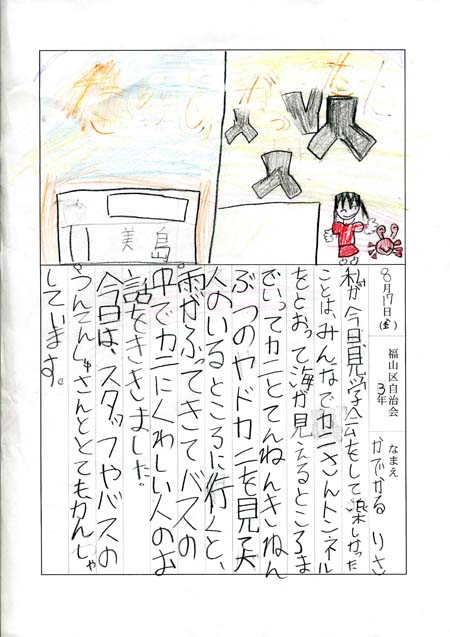 たのしかった
美島
8月17日(金) 福山区自治会 3年 なまえ かでかる りさ
私が今日、見学会をして楽しかった
ことは、みんなでカニさんトンネル
をとおって海が見えるところま
でいってカニとてんねんきねん
ぶつのヤドカニを見て大
人のいるところに行くと、
雨がふってきてバスの
中でカニにくわしい人のお
話をききました。
今日は、スタッフやバスの
うんてんしゅさんととてもかんしゃ
しています。